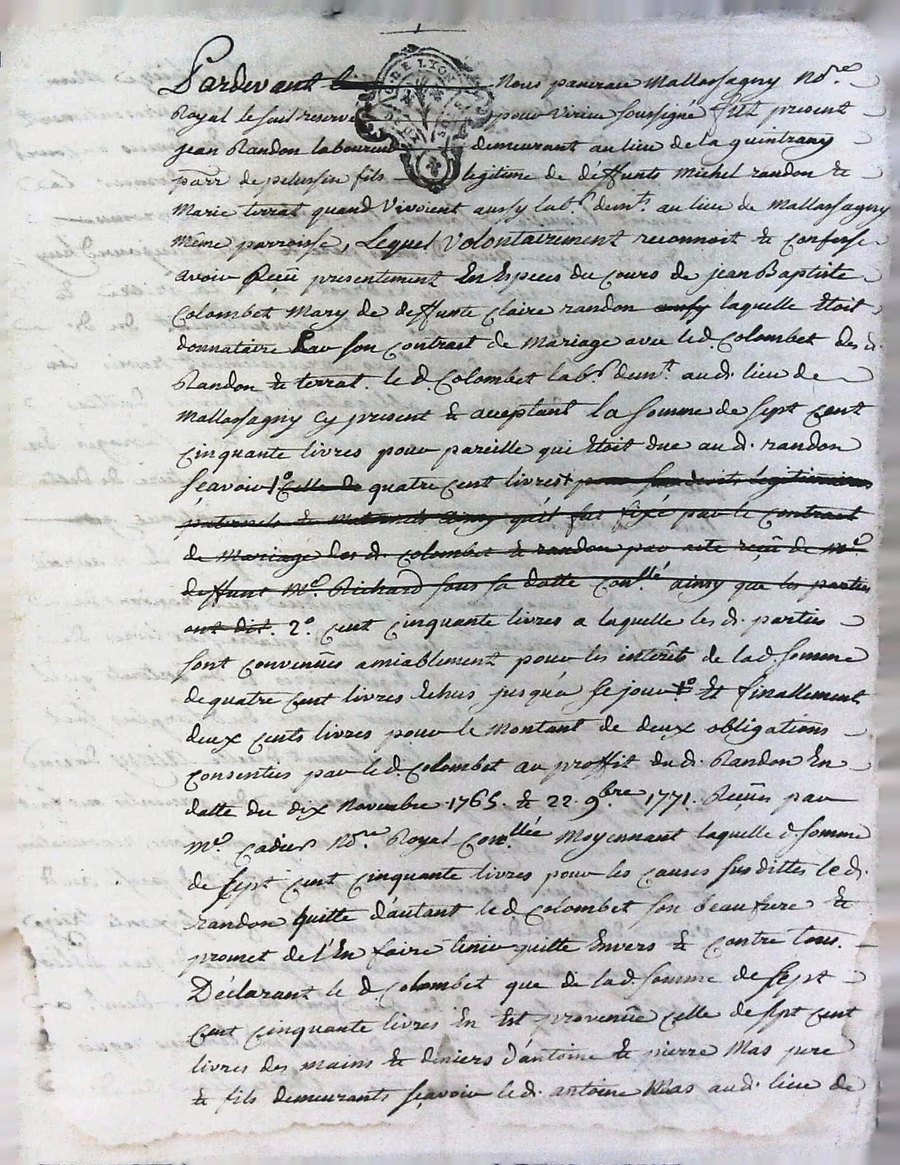 Pardevant Nous paneraie Mallassagny No.re
Royal le seul reservé pour Virieu soussigné fut present
jean Randon laboureur demeurant au lieu de la quintrany
parr.e de pelussin fils legitime de déffunts Michel randon &
Marie terrat quand Vivoient aussy lab.rs dem.ts au lieu de Mallassagny
même parroisse, Lequel Volontairement reconnoit & confesse
avoir Reçu presentement En Especes du cours de jean Baptiste
Colombet Mary de deffunte Claire randon aussy laquelle étoit
donnataire Par son contrast de Mariage avec led. Colombet des d.
Randon & terrat. le d. Colombet lab.r dem.t au d. lieu de
Mallassagny Cy present & aceptant la somme de sept cent
cinquante livres pour pareille qui étoit due au d. randon
sçavoir 1.o celle de quatre cent livres pour ses droits legitimaires
paternels & maternels ainsy qu'il fut fixé par le contrast
de Mariage des d. colombet & randon par acte reçu de M.e
deffunt M.e Richard sous sa datte con.llé ainsy que les parties
ont dit. 2.o cent cinquante livres a laquelle les d. parties
sont convenües amiablement pour les interêts de lad. somme
de quatre cent livres Echus jusqu'a ce jour Et finallement
deux cents livres pour le montant de deux obligations
consenties par le d. Colombet au proffit du d. Randon En
datte du dix Novembre 1765. & 22. 9.bre 1771. Reçües par
M.e Cadier No.re Royal Con.llée Moyennant laquelle d. somme
de sept cent cinquante livres pour les causes susdittes le d.
randon quitte d'autant le d. colombet son beaufrere &
promet de l'En faire tenir quitte Envers & contre tous.
Déclarant le d. Colombet que de lad. somme de sept
cent cinquante livres En Est provenüe celle de sept cent
livres des mains & deniers d'antoine & pierre Mas pere
& fils demeurants sçavoir le d. antoine Mas au d. lieu de